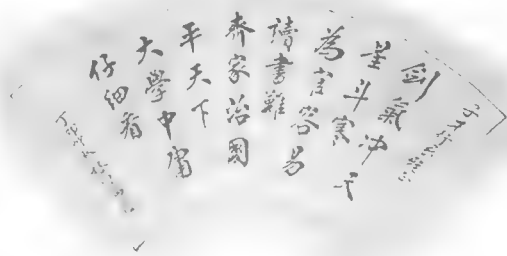 剑氣冲
星斗寒
為官容易
讀書難
齊家治國
平天下
大學中庸
仔細看
丁卯秋